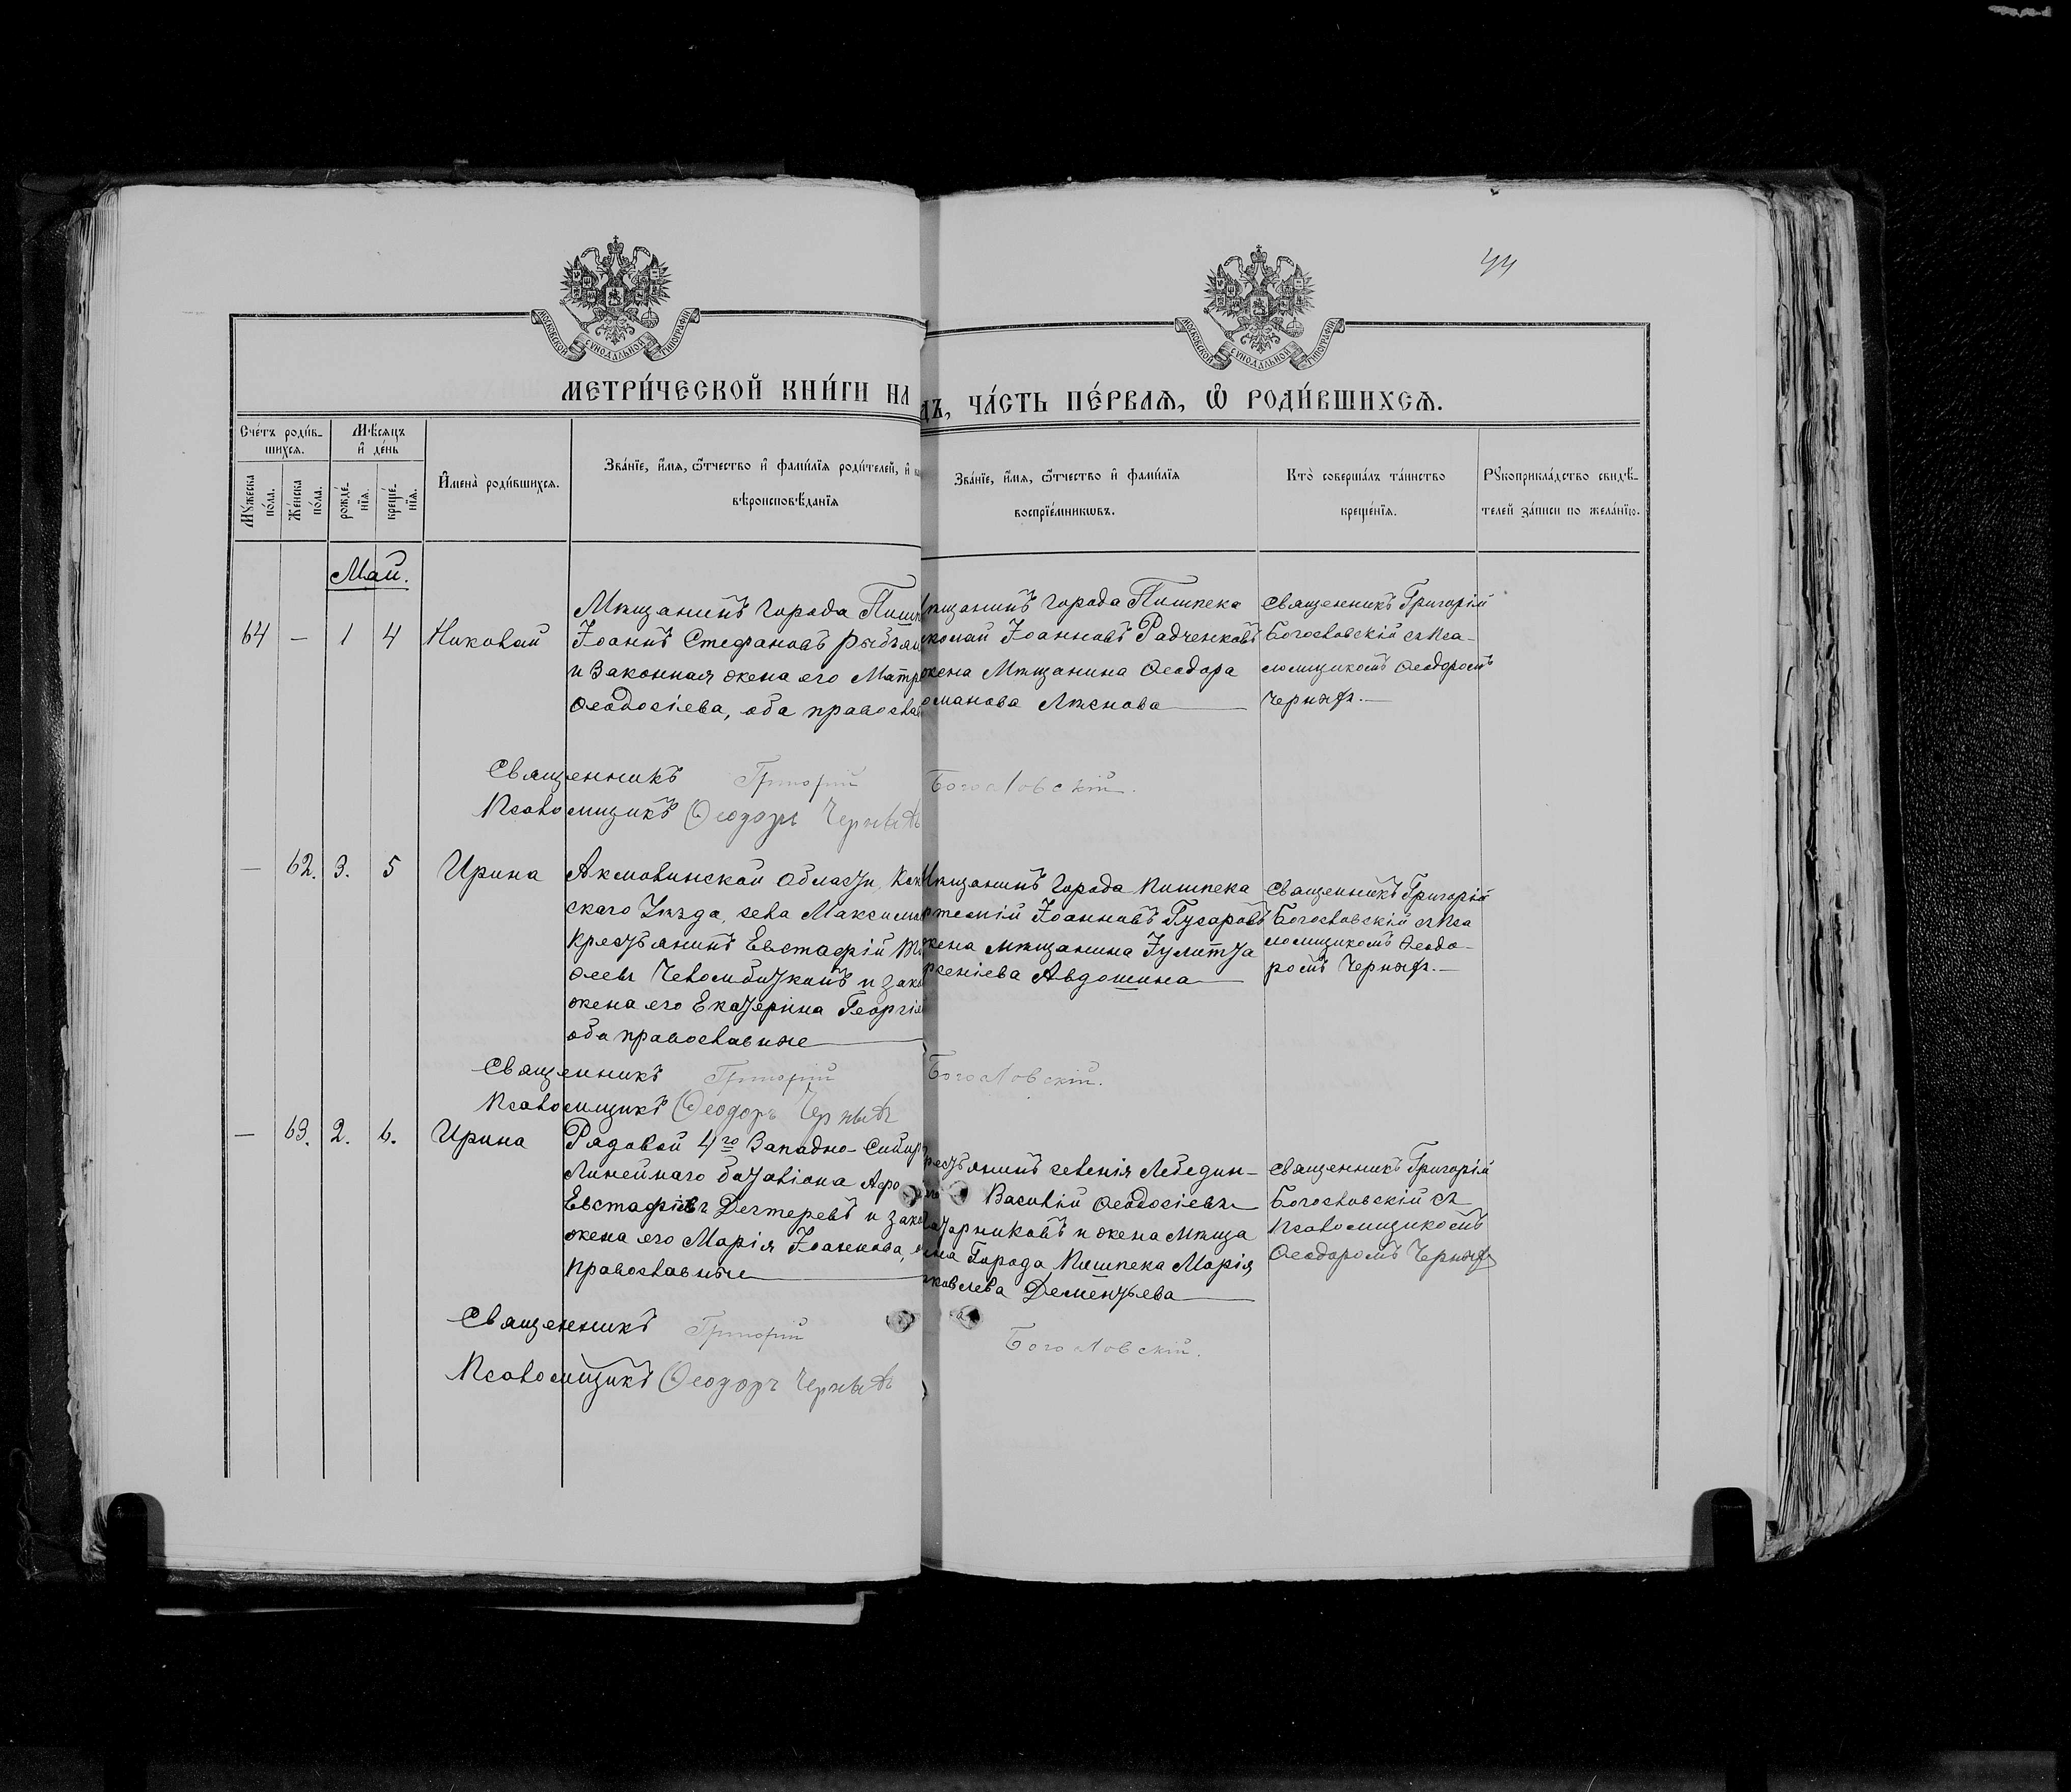 44
МОСКОВСКОЙ СѴНОДАЛЬНОЙ ТИПОГРАФІИ
МОСКОВСКОЙ СѴНОДАЛЬНОЙ ТИПОГРАФІИ
МЕТРИ́ЧЕСКОЙ КНИ́ГИ НА
ДЪ, ЧА́СТЬ ПЕ́РВАѦ, Ѡ РОДИ́ВШИХСѦ.
Сче́тъ роди́в-
шихсѧ.
Мѣ́сяцъ
и҆ де́нь
Мꙋ́жеска
по́ла.
Же́нска
по́ла.
рожде́-
нїѧ.
креще́-
нїѧ.
И҆мена̀ роди́вшихсѧ.
Зва́нїе, и҆́мѧ, ѻ҆́тчество и҆ фами́лїѧ роди́телей, и҆
вѣроисповѣ́данїѧ
Зва́нїе, и҆́мѧ, ѻ҆́тчество и҆ фами́лїѧ
воспрїе́мникѡвъ.
Кто̀ соверша́лъ та́инство
креще́нїѧ.
Рꙋкоприкла́дство свидѣ́-
телей за́писи по жела́нїю.
Май.
64 — 1 4 Николай
Мѣщанинъ города Пишп
Іоаннъ Стефановъ Рыбъял
и законная жена его Матр
Ѳеодосіева, оба правосла
ѣщанинъ города Пишпека
колай Іоанновъ Радченковъ
жена Мѣщанина Ѳеодора
оманова Лѣснова
Священникъ Григорій
Богословскій съ Пса-
ломщикомъ Ѳеодоромъ
Чернякъ.—
Священникъ Григорій Богословскій.
Псаломщикъ Ѳеодоръ
— 62. 3. 5 Ирина
Акмолинской области, Кок
скаго Уѣзда, села Максимо
крестьянинъ Евстафій
жена его Екатерина Георгіе
оба православные
Мѣщанинъ города Пишпека
ртемій Іоанновъ Гусаровъ
жена мѣщанина Іулитта
рсеніева Авдошина
Священникъ Григорій
Богословскій съ Пса
ломщикомъ Ѳеодо-
ромъ Чернякъ.—
Священникъ Григорій Богословскій.
Псаломщикъ Ѳеодоръ
— 63. 2. 6. Ирина
Рядовой 4го Западно-Сибир
Линейнаго баталіона Афо
Евстафіевъ Дегтеревъ и зако
жена его Марія Іоаннова,
православные
рестьянинъ селенія Лебедин-
Василій Ѳеодосіевъ
и жена мѣща
нина города Пишпека Марія
ковлева Дементьева
Священникъ Григорій
Богословскій съ
Псаломщикомъ
Ѳеодоромъ Чернякъ
Священникъ Григорій Богословскій.
Псаломщикъ Ѳеодоръ